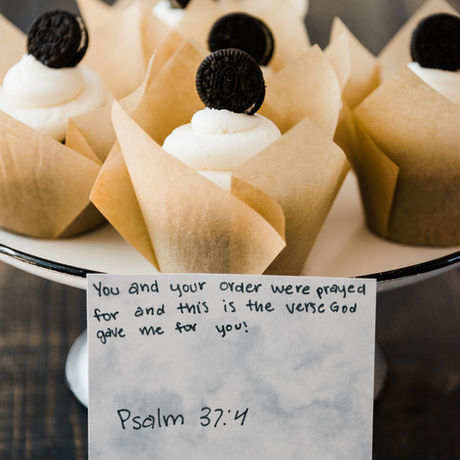 You and your order were prayed
for and this is the verse God
gave me for you!
Psalm 37:4